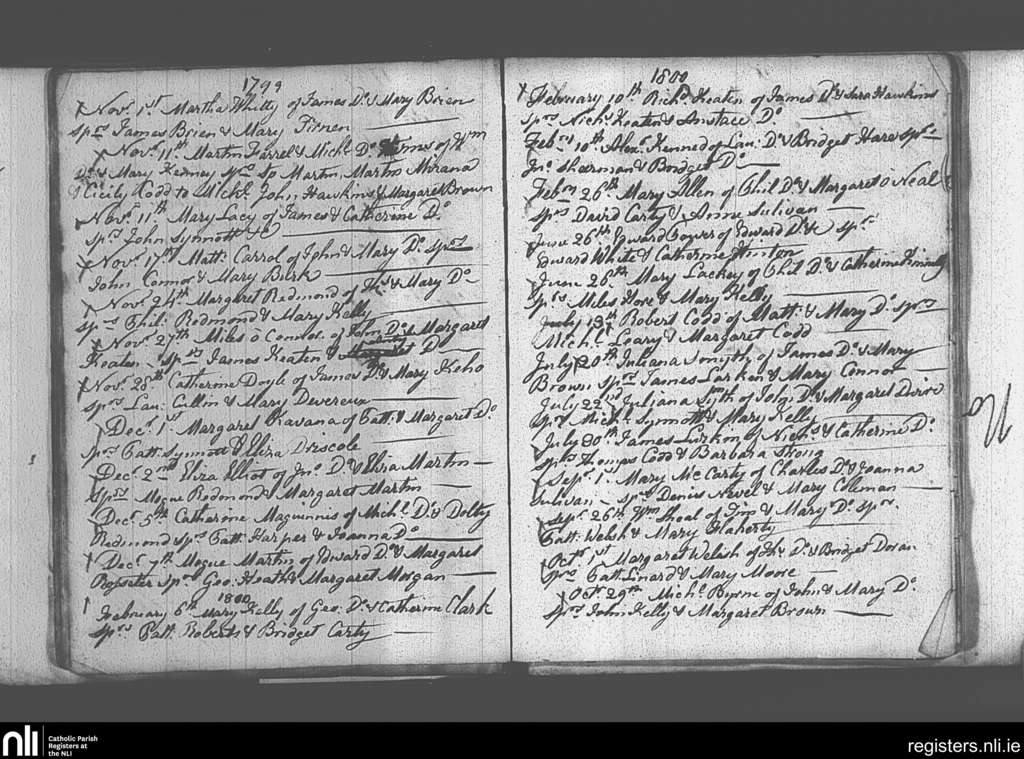 1799
Nov.r 1st Martha Whitty of James D.o & Mary Brien
Sp.rs James Brien & Mary Firnen
Nov.r 11th Martin Farrel & Mich.l D.o of Wm
D.o & Mary Kedney Sp. Martin Martin
& Cicily Codd to Mich.l John Hawkins & Margaret Brown
Nov.r 11th Mary Lacy of James & Catherine D.o
Sp.rs John Synnott &c
Nov.r 17th Matt: Carrol of John & Mary D.o Sp.rs
John Connor & Mary Burk
Nov.r 24th Margaret Redmond of & Mary D.o
Sp.rs Phil: Redmond & Mary Kelly
Nov.r 27th Miles o Connor of John D.o & Margaret
Keaten Sp.rs James Keaten & D.o
Nov.r 28th Catherine Doyle of James D.o & Mary Keho
Sp.rs Lau: Cullin & Mary Devereux
Dec.r 1st Margaret Kavana of Patt: & Margaret D.o
Sp.rs Patt: Synnott & Eliza Driscole
Dec.r 2nd Eliza Elliot of Jn.o D.o & Eliza Martin
Sp.rs Mogue Redmond & Margaret Martin
Dec.r 5th Catherine Maguennis of Mich.l D.o & Dolty
Redmond Sp.rs Patt: Harper & Joanna D.o
Dec.r 7th Mogue Martin of Edward D.o & Margaret
Rossiter Sp.rs Geo: Heath & Margaret Morgan
1800
February 6th Mary Kelly of Geo: D.o & Catherine Clark
Sp.rs Patt: Roberts & Bridget Carty
1800
February 10th Rich.d Keaten of James D.o & Sara Hawkins
Sp.rs Nich.s Keaten & Anstace D.o
Feb.ry 10th Alex.r Kenned of Lau: D.o & Bridget Hare Sp.rs
Jn.o Sharman & Bridget D.o
Feb.ry 26th Mary Allen of Phil D.o & Margaret o Neal
Sp.rs David Carty & Anne Sulivan
June 26th Edward Bower of Edward D.o & Sp.rs
Edward White & Catherine Hinton
June 26th Mary Lackey of Phil D.o & Catherine
Sp.rs Miles Hore & Mary Kelly
July 13th Robert Codd of Matt: & Mary D.o Sp.rs
Mich.l Leary & Margaret Codd
July 20th Juliana Smyth of James D.o & Mary
Brown Sp.rs James Larken & Mary Connor
July 22nd Juliana of John D.o & Margaret
Sp.rs Mich.l Synnott & Mary Kelly
July 30th James Larkin of Nich.s & Catherine D.o
Sp.rs Thomas Codd & Barbara Strong
Sep.r 1st Mary McCarty of Charles D.o & Joanna
Sulivan Sp.rs Denis Nevel & Mary Coleman
Sep.r 26th Wm Shoal of Tim & Mary D.o Sp.rs
Patt: Welsh & Mary Flaherty
Oct.r 1st Margaret Welsh of D.o & Bridget Doran
Sp.rs Patt: Linard & Mary Moore
Oct.r 29th Mich.l Byrne of John & Mary D.o
Sp.rs John Kelly & Margaret Brown
nli
Catholic Parish
Registers at
the NLI
registers.nli.ie